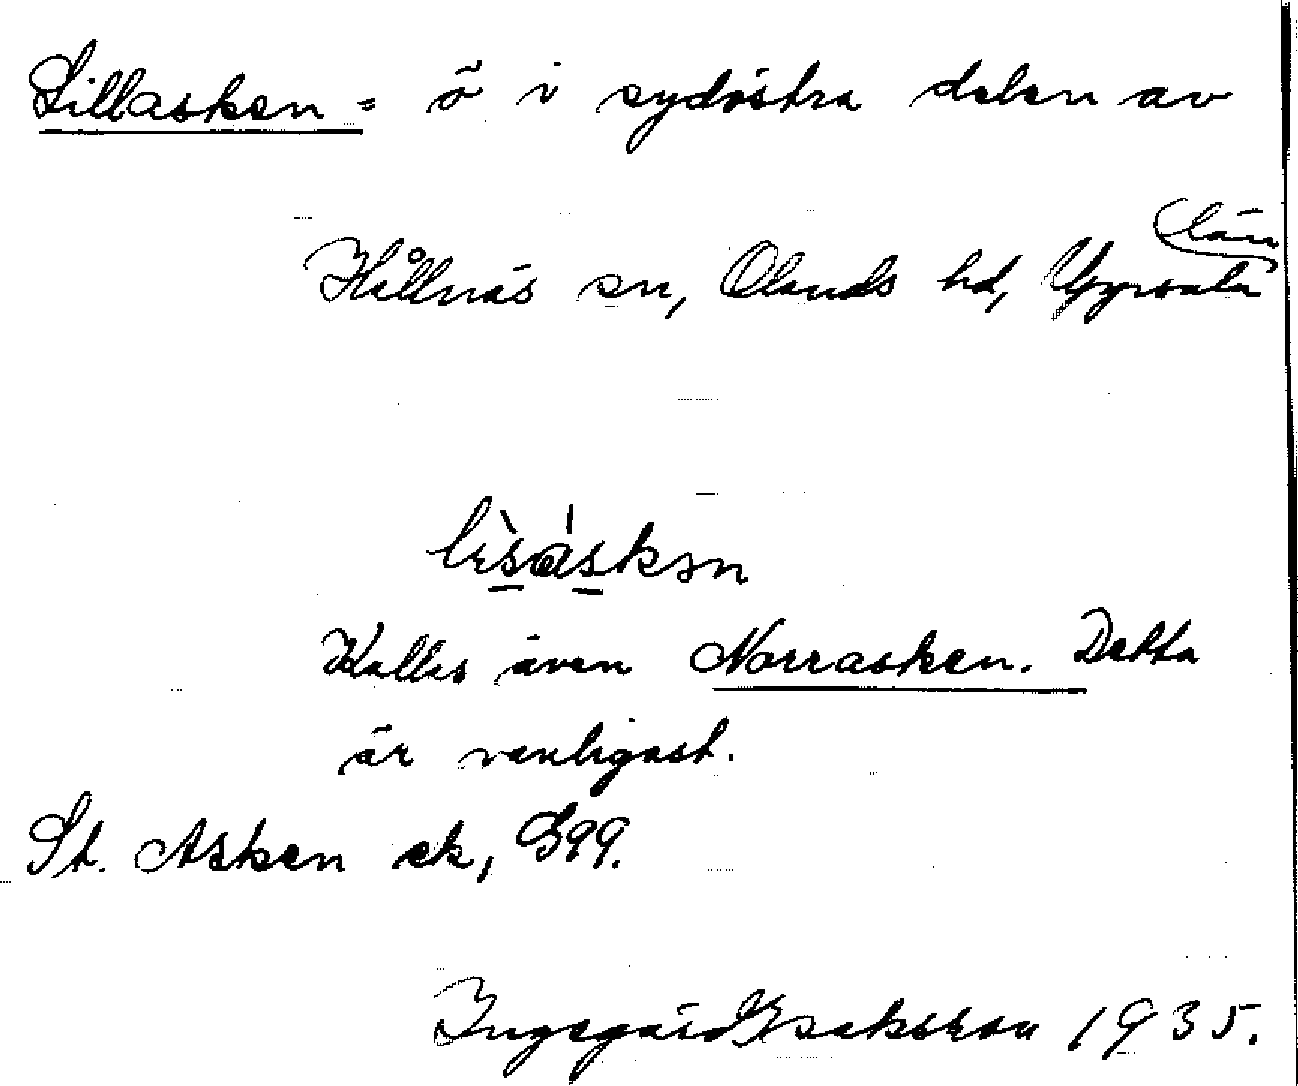 Lillasken = ö i sydöstra delen av
Hållnäs sn, Olands hd, Uppsala län
Kallas även Norrasken. Detta
är vanligast.
St. Asken ek, G99.
Ingegärd Isaksson 1935.